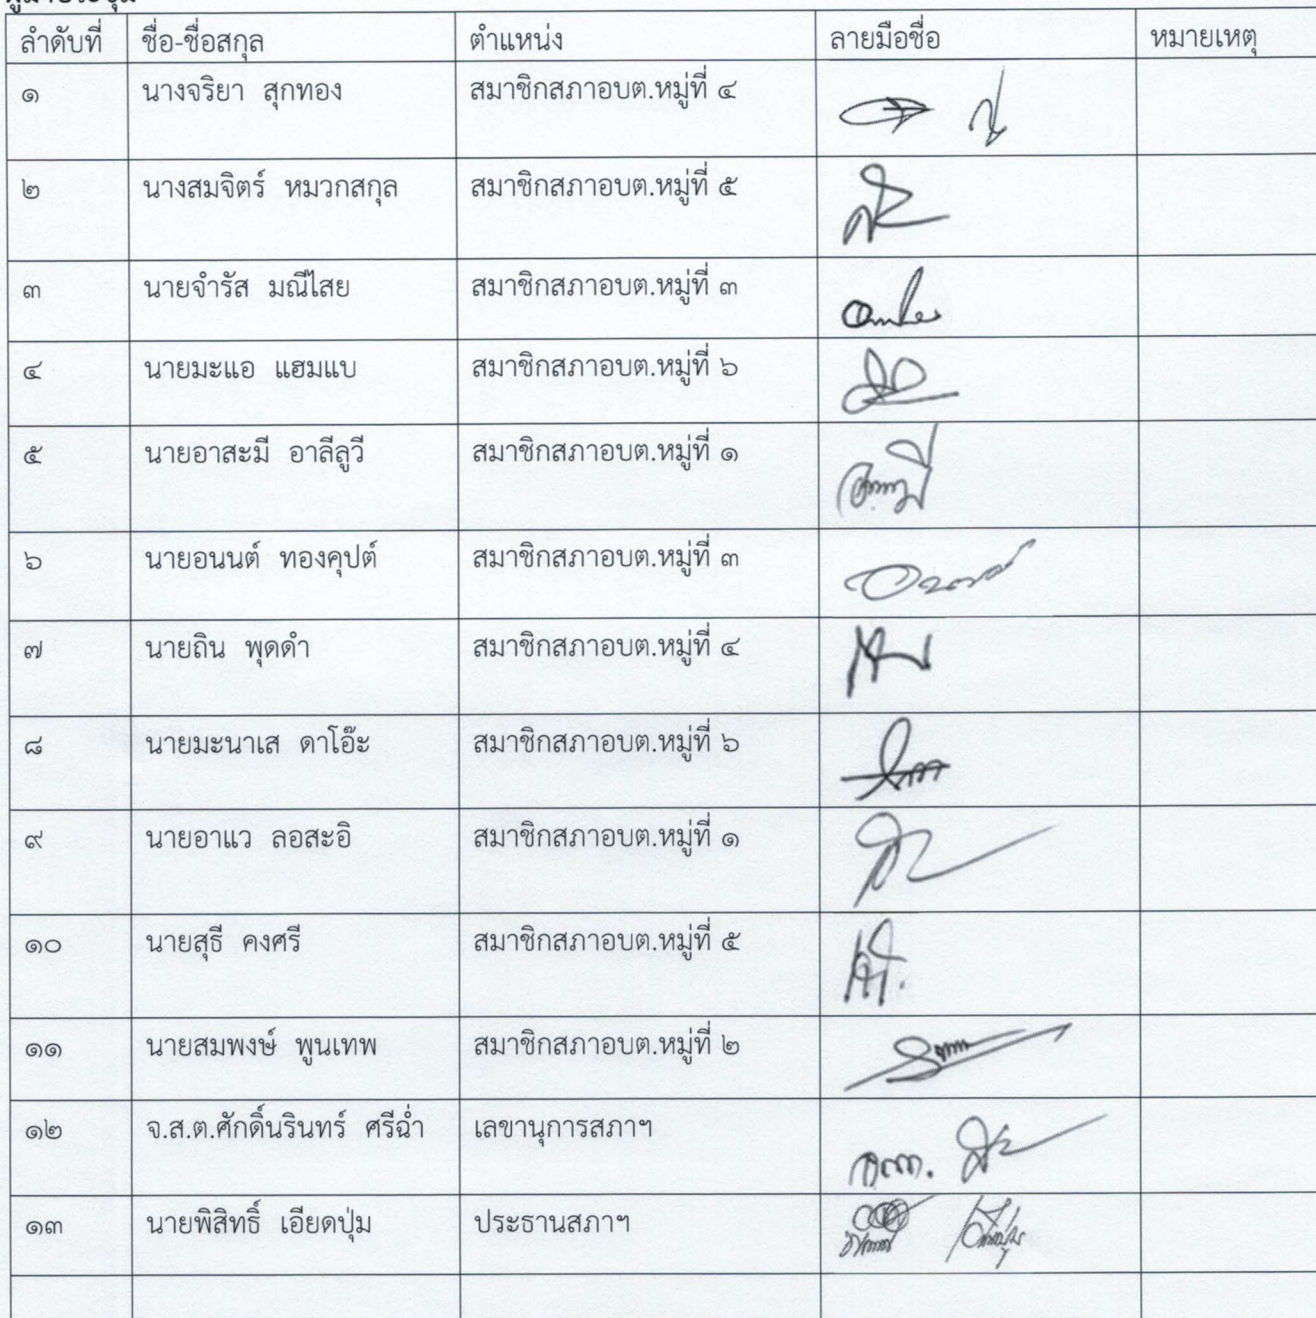 ผู้มาประชุม
ลำดับที่ ชื่อ-ชื่อสกุล ตำแหน่ง ลายมือชื่อ หมายเหตุ
๑ นางจริยา สุกทอง สมาชิกสภาอบต.หมู่ที่ ๔
๒ นางสมจิตร์ หมวกสกุล สมาชิกสภาอบต.หมู่ที่ ๕
๓ นายจำรัส มณีไสย สมาชิกสภาอบต.หมู่ที่ ๓
๔ นายมะแอ แฮมแบ สมาชิกสภาอบต.หมู่ที่ ๖
๕ นายอาสะมี อาลีลูวี สมาชิกสภาอบต.หมู่ที่ ๑
๖ นายอนนต์ ทองคุปต์ สมาชิกสภาอบต.หมู่ที่ ๓
๗ นายถิน พุดดำ สมาชิกสภาอบต.หมู่ที่ ๔
๘ นายมะนาเส ดาโอ๊ะ สมาชิกสภาอบต.หมู่ที่ ๖
๙ นายอาแว ลอสะอิ สมาชิกสภาอบต.หมู่ที่ ๑
๑๐ นายสุธี คงศรี สมาชิกสภาอบต.หมู่ที่ ๕
๑๑ นายสมพงษ์ พูนเทพ สมาชิกสภาอบต.หมู่ที่ ๒
๑๒ จ.ส.ต.ศักดิ์นรินทร์ ศรีฉ่ำ เลขานุการสภาฯ
๑๓ นายพิสิทธิ์ เอียดปุ่ม ประธานสภาฯ